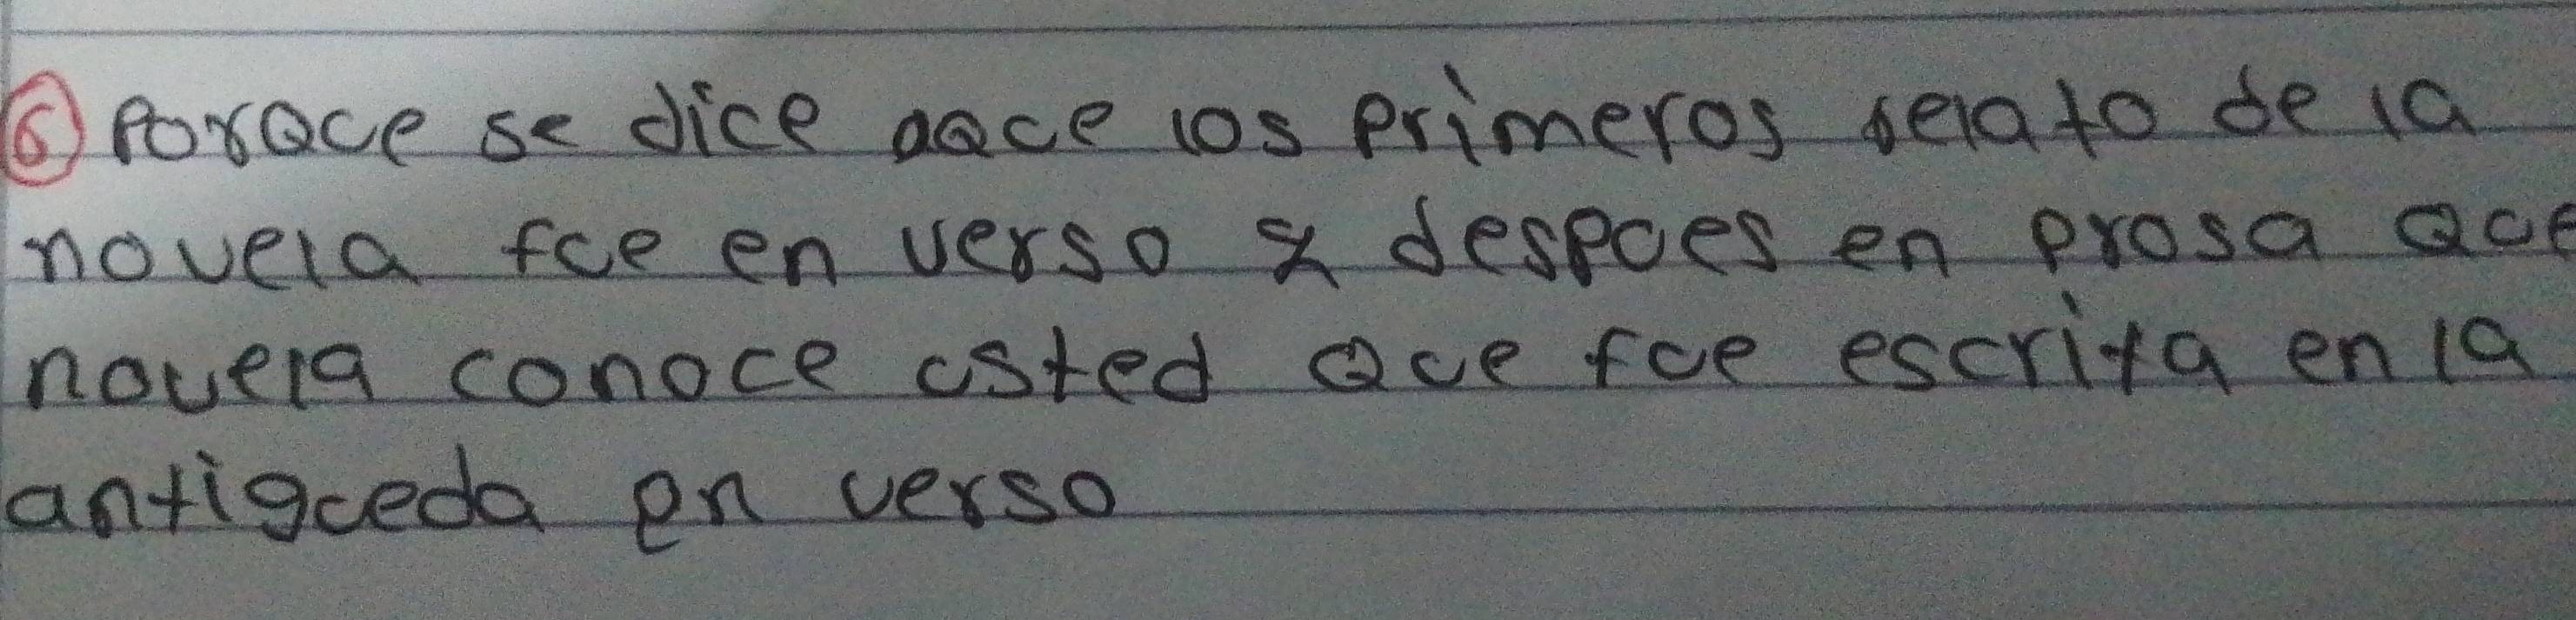 6 Porque se dice aque los primeros relato de la
novela fue en verso y despues en prosa que
novela conoce usted que fue escrita en la
antigueda en verso